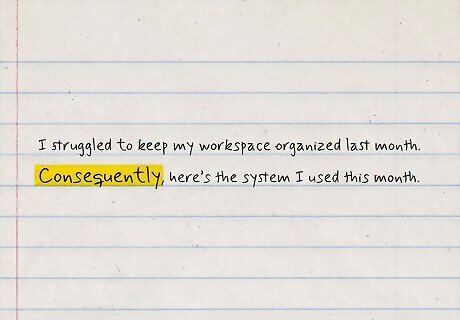 I struggled to keep my workspace organized last month.
Consequently, here's the system I used this month.